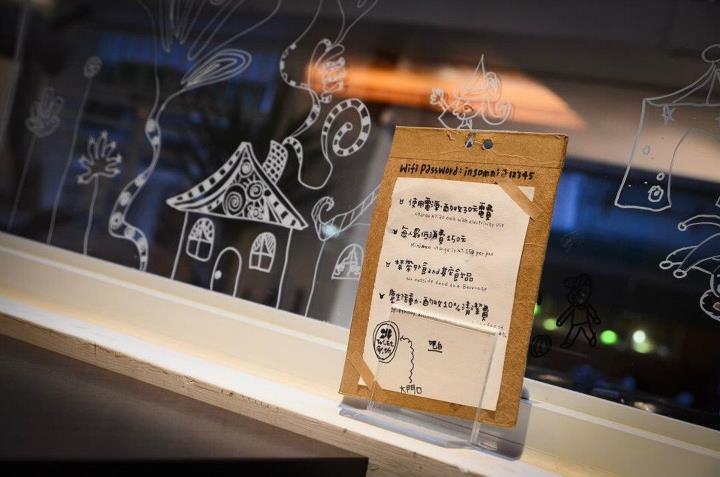 Wifi Password: insomni@12345
使用電源,酌收30元電費
charge NT.30 each with electricity use
每人最低消費150元
Minimum charge is NT.150 per person
禁帶外食and其它食品
no outside food and Beverage
酌收10%清潔費
吧台
大門口